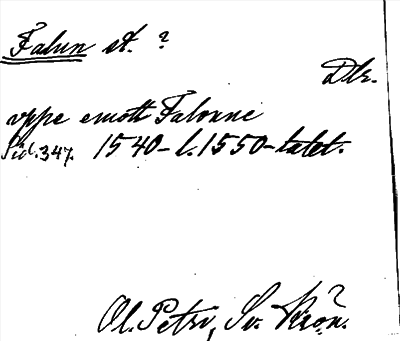 Falun st. ?
Dlr.
vppe emott Falonne
Sid. 347. 1540- l. 1550-talet.
Ol. Petri, Sv. Krön.